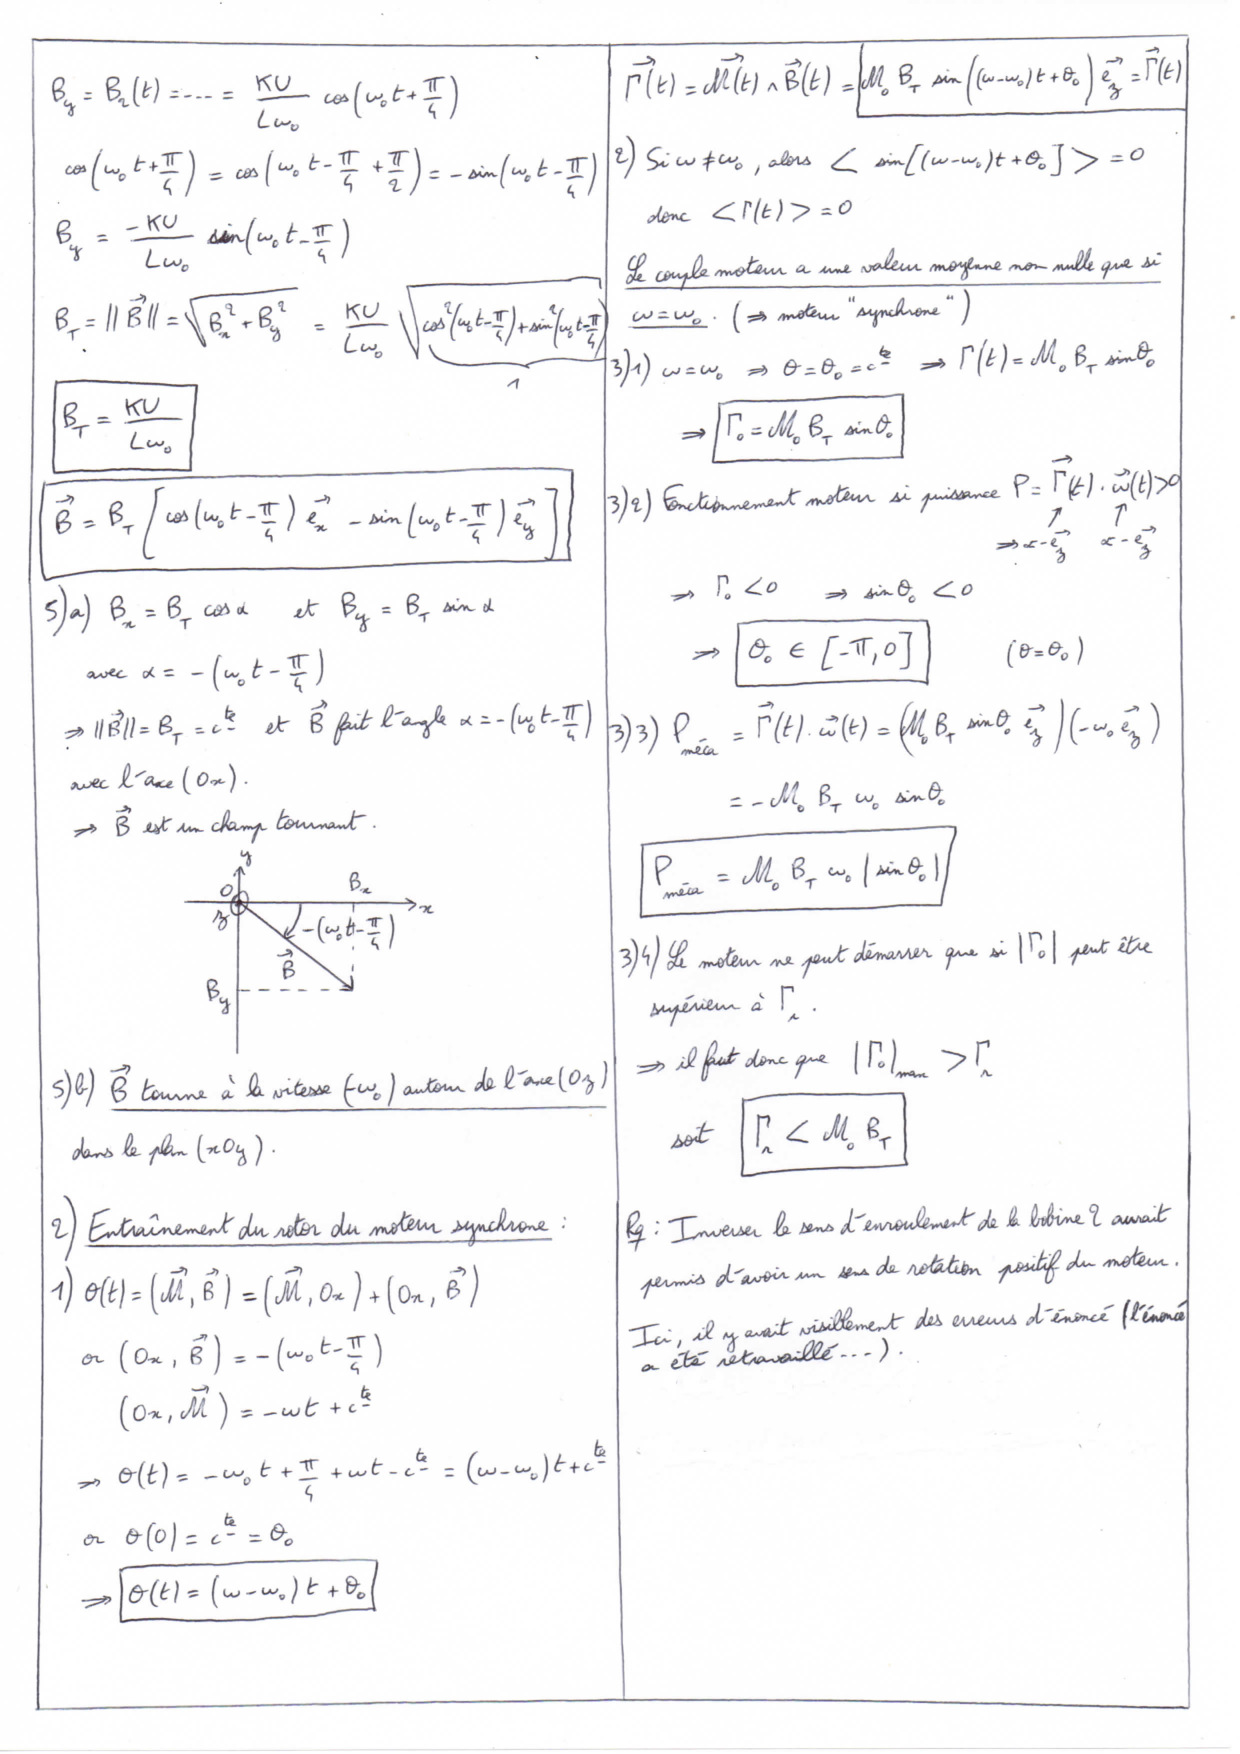 B_y = B_2(t) = ---- = KU/(Lω₀) cos(ω₀t + π/4)
cos(ω₀t + π/4) = cos(ω₀t - π/4 + π/2) = - sin(ω₀t - π/4)
B_y = -KU/(Lω₀) sin(ω₀t - π/4)
B_T = ||B⃗|| = √(B_x² + B_y²) = KU/(Lω₀) √(cos²(ω₀t - π/4) + sin²(ω₀t - π/4))
1
B_T = KU/(Lω₀)
B⃗ = B_T [cos(ω₀t - π/4) e⃗_x - sin(ω₀t - π/4) e⃗_y]
5)a) B_x = B_T cos α et B_y = B_T sin α
avec α = - (ω₀t - π/4)
⇒ ||B⃗|| = B_T = c^te et B⃗ fait l'angle α = - (ω₀t - π/4)
avec l'axe (Ox).
⇒ B⃗ est un champ tournant.
y
O B_x
z x
-(ω₀t - π/4)
B⃗
B_y
5)b) B⃗ tourne à la vitesse (-ω₀) autour de l'axe (Oz)
dans le plan (xOy).
2) Entraînement du rotor du moteur synchrone :
1) θ(t) = (M⃗, B⃗) = (M⃗, Ox) + (Ox, B⃗)
or (Ox, B⃗) = - (ω₀t - π/4)
(Ox, M⃗) = - ωt + c^te
⇒ θ(t) = - ω₀t + π/4 + ωt - c^te = (ω - ω₀)t + c^te
or θ(0) = c^te = θ₀
⇒ θ(t) = (ω - ω₀)t + θ₀
Γ⃗(t) = M⃗(t) ∧ B⃗(t) = M₀ B_T sin((ω - ω₀)t + θ₀) e⃗_z = Γ⃗(t)
2) Si ω ≠ ω₀, alors < sin[(ω - ω₀)t + θ₀] > = 0
donc < Γ(t) > = 0
Le couple moteur a une valeur moyenne non nulle que si
ω = ω₀. (⇒ moteur "synchrone")
3)1) ω = ω₀ ⇒ θ = θ₀ = c^te ⇒ Γ(t) = M₀ B_T sin θ₀
⇒ Γ₀ = M₀ B_T sin θ₀
3)2) Fonctionnement moteur si puissance P = Γ⃗(t) . ω⃗(t) > 0
⇒ ∝ - e⃗_z ∝ - e⃗_z
⇒ Γ₀ < 0 ⇒ sin θ₀ < 0
⇒ θ₀ ∈ [-π, 0] (θ = θ₀)
3)3) P_méca = Γ⃗(t) . ω⃗(t) = (M₀ B_T sin θ₀ e⃗_z)(-ω₀ e⃗_z)
= - M₀ B_T ω₀ sin θ₀
P_méca = M₀ B_T ω₀ |sin θ₀|
3)4) Le moteur ne peut démarrer que si |Γ₀| peut être
supérieur à Γ_r.
⇒ il faut donc que |Γ₀|_max > Γ_r
soit Γ_r < M₀ B_T
Rq : Inverser le sens d'enroulement de la bobine 2 aurait
permis d'avoir un sens de rotation positif du moteur.
Ici, il y avait visiblement des erreurs d'énoncé (l'énoncé
a été retravaillé ---).